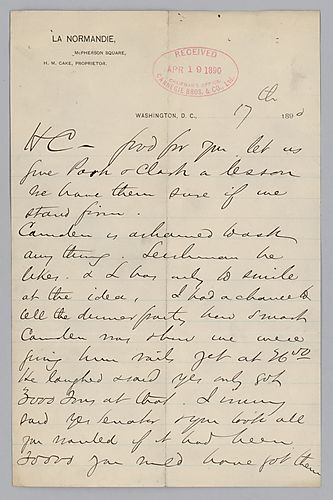 LA NORMANDIE,
McPHERSON SQUARE,
H. M. CAKE, PROPRIETOR.
RECEIVED
APR 19 1890
CHAIRMAN'S OFFICE
CARNEGIE BROS. & CO. Ltd.
WASHINGTON, D. C.,
17th 1890
H C — good for you let us
give Park & Clark a lesson
We have them sure if we
stand firm.
Camden is ashamed to ask
any thing. Leishman he
likes. & I has only to smile
at the idea, I had a chance to
tell the dinner party how smart
Camden was when we were
giving him rails yet at 26 00
He laughed & said yes only got
3000 Tons at that. I
said yes Senator & you took all
you wanted if it had been
30000 you would have got them